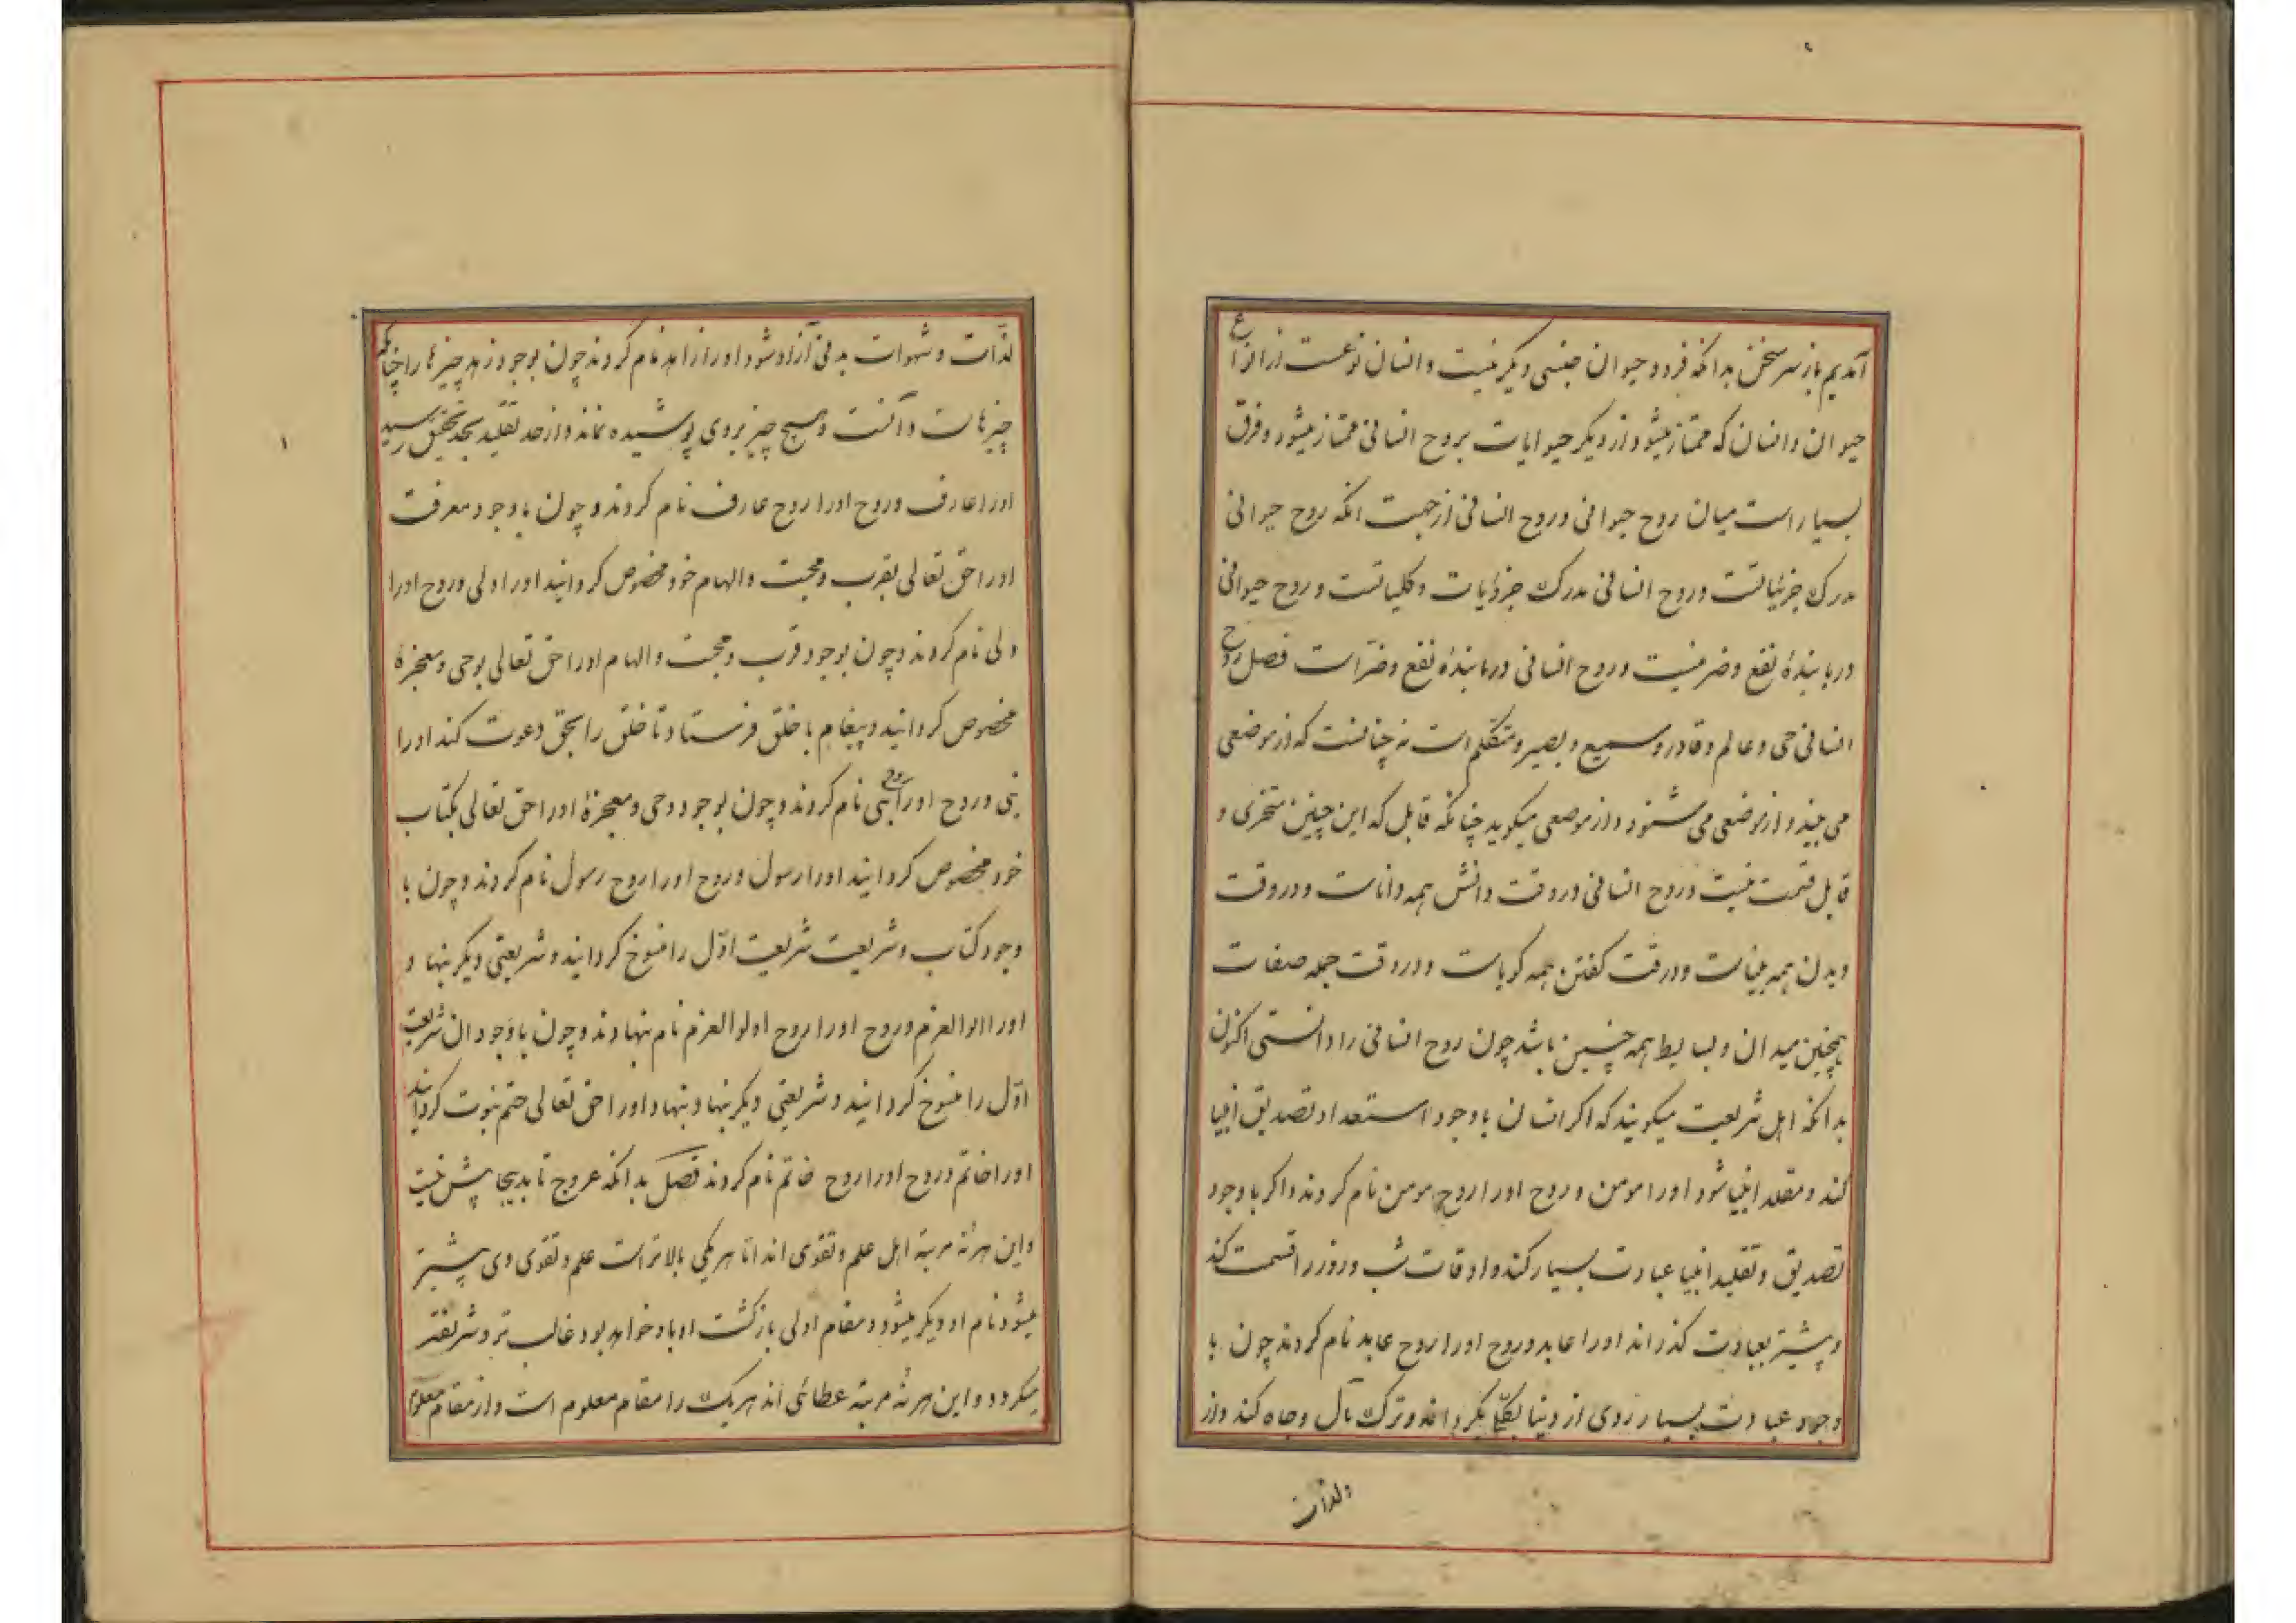 آمدیم باز سر سخن بدانکه فرد و حیوان جنسی دیگر نیست و انسان نوعست از انواع
حیوان و انسان که ممتاز میشود از دیگر حیوانات بروح انسانی ممتاز میشود و فرق
بسیار است میان روح حیوانی و روح انسانی از جهت انکه روح حیوانی
مدرک جزئیاتست و روح انسانی مدرک جزئیات و کلیاتست و روح حیوانی
دریابندهٔ نفع و ضر نیست و روح انسانی دریابندهٔ نفع و ضرّ است فصل روح
انسانی حی و عالم و قادر و سمیع و بصیر و متکلم است نه چنانست که از موضعی
می بیند و از موضعی می شنود و از موضعی میکوید چنانکه قابل که این چنین متجزی و
قابل قسمت نیست و روح انسانی در وقت دانش همه داناست و در وقت
دیدن همه بیناست و در وقت کفتن همه کویاست و در وقت جمله صفات
همچنین میدان و بسایط همه چنین باشد چون روح انسانی را دانستی اکنون
بدانکه اهل شریعت میکویند که اکر انسان باوجود استعداد تصدیق انبیا
کند و مقلد انبیا شود اورا مومن و روح اورا روح مومن نام کردند و اکر باوجود
تصدیق و تقلید انبیا عبادت بسیار کند و اوقات شب و روز را قسمت کند
و بیشتر بعبادت کذراند اورا عابد و روح اورا روح عابد نام کردند چون با
وجود عبادت بسیار روی از دنیا بکلّی بکرداند و ترک مال و جاه کند و از
و لذات
لذّات و شهوات بدنی آزاد شود اورا زاهد نام کردند چون بوجود زهد چیزها را چنانکه
چیزهاست دانست و هیچ چیز بر وی پوشیده نماند و از حد تقلید بحد تحقیق رسید
اورا عارف و روح اورا روح عارف نام کردند و چون باوجود معرفت
اورا حق تعالی بقرب و محبت و الهام خود مخصوص کردانید اورا ولی و روح اورا
ولی نام کردند و چون بوجود قرب و محبت و الهام اورا حق تعالی بوحی و معجزهٔ
مخصوص کردانید و پیغام با خلق فرستاد تا خلق را بحق دعوت کند اورا
نبی و روح اورا روح نبی نام کردند و چون بوجود وحی و معجزهٔ اورا حق تعالی بکتاب
خود مخصوص کردانید اورا رسول و روح اورا روح رسول نام کردند و چون با
وجود کتاب و شریعت شریعت اوّل را منسوخ کردانید و شریعتی دیکر بنهاد
اورا الوالعزم و روح اورا روح اولوالعزم نام بنهادند و چون باوجود ان شریعت
اوّل را منسوخ کردانید و شریعتی دیکر بنهاد بنهاد و اورا حق تعالی ختم نبوت کردانید
اورا خاتم و روح اورا روح خاتم نام کردند فصل بدانکه عروج تا بدینجا بیش نیست
و این هر نه مرتبه اهل علم و تقوی اند اما هر یکی بالاتر است علم و تقوی وی بیشتر
میشود نام او دیکر میشود و مقام اولی بازکشت او باو خواهد بود غالب تر و شریفتر
میکردد و این هر نه مرتبه عطائی اند هر یک را مقام معلوم است و از مقام معلوم